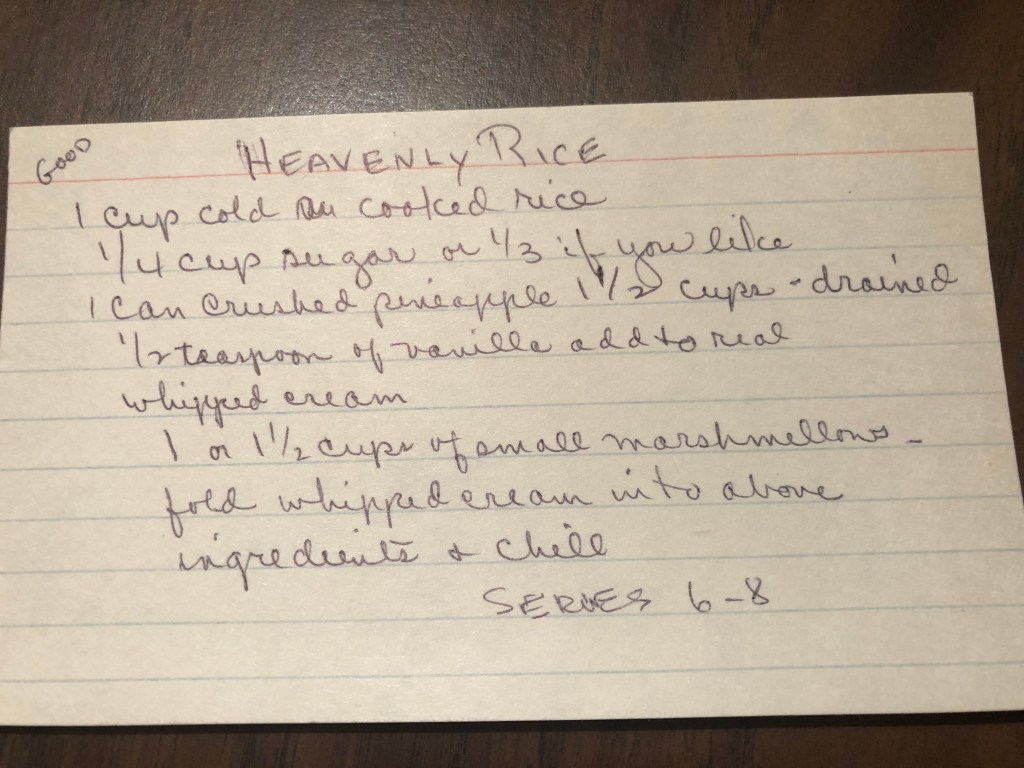 GOOD
HEAVENLY RICE
1 cup cold cooked rice
1/4 cup sugar or 1/3 if you like
1 can crushed pineapple 1 1/2 cups - drained
1/2 teaspoon of vanilla add to real
whipped cream
1 or 1 1/2 cups of small marshmellows -
fold whipped cream into above
ingredients & chill
SERVES 6-8